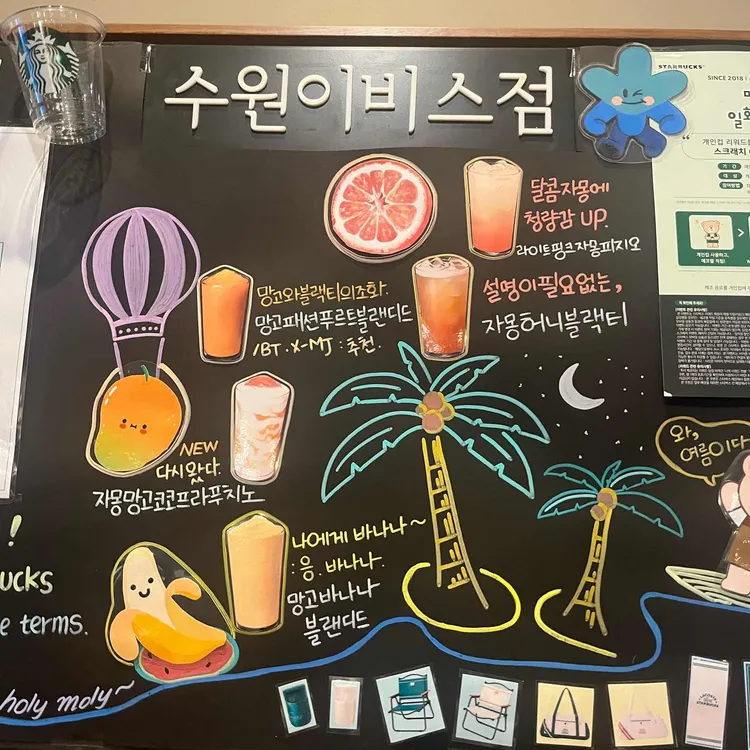 수원이비스점
STARBUCKS
SINCE 2018
개인컵 리워드
스크래치
기간
대상
개인컵 사용하고,
달콤자몽에
청량감 UP.
라이트핑크자몽피지오
망고와블랙티의조화.
망고패션푸르트블렌디드
/BT.X-MJ : 추천.
설명이필요없는,
자몽허니블랙티
NEW
다시왔다.
자몽망고코코프라푸치노
와,
여름이다
나에게 바나나~
:응. 바나나.
망고바나나
블렌디드
!
ucks
e terms.
holy moly~